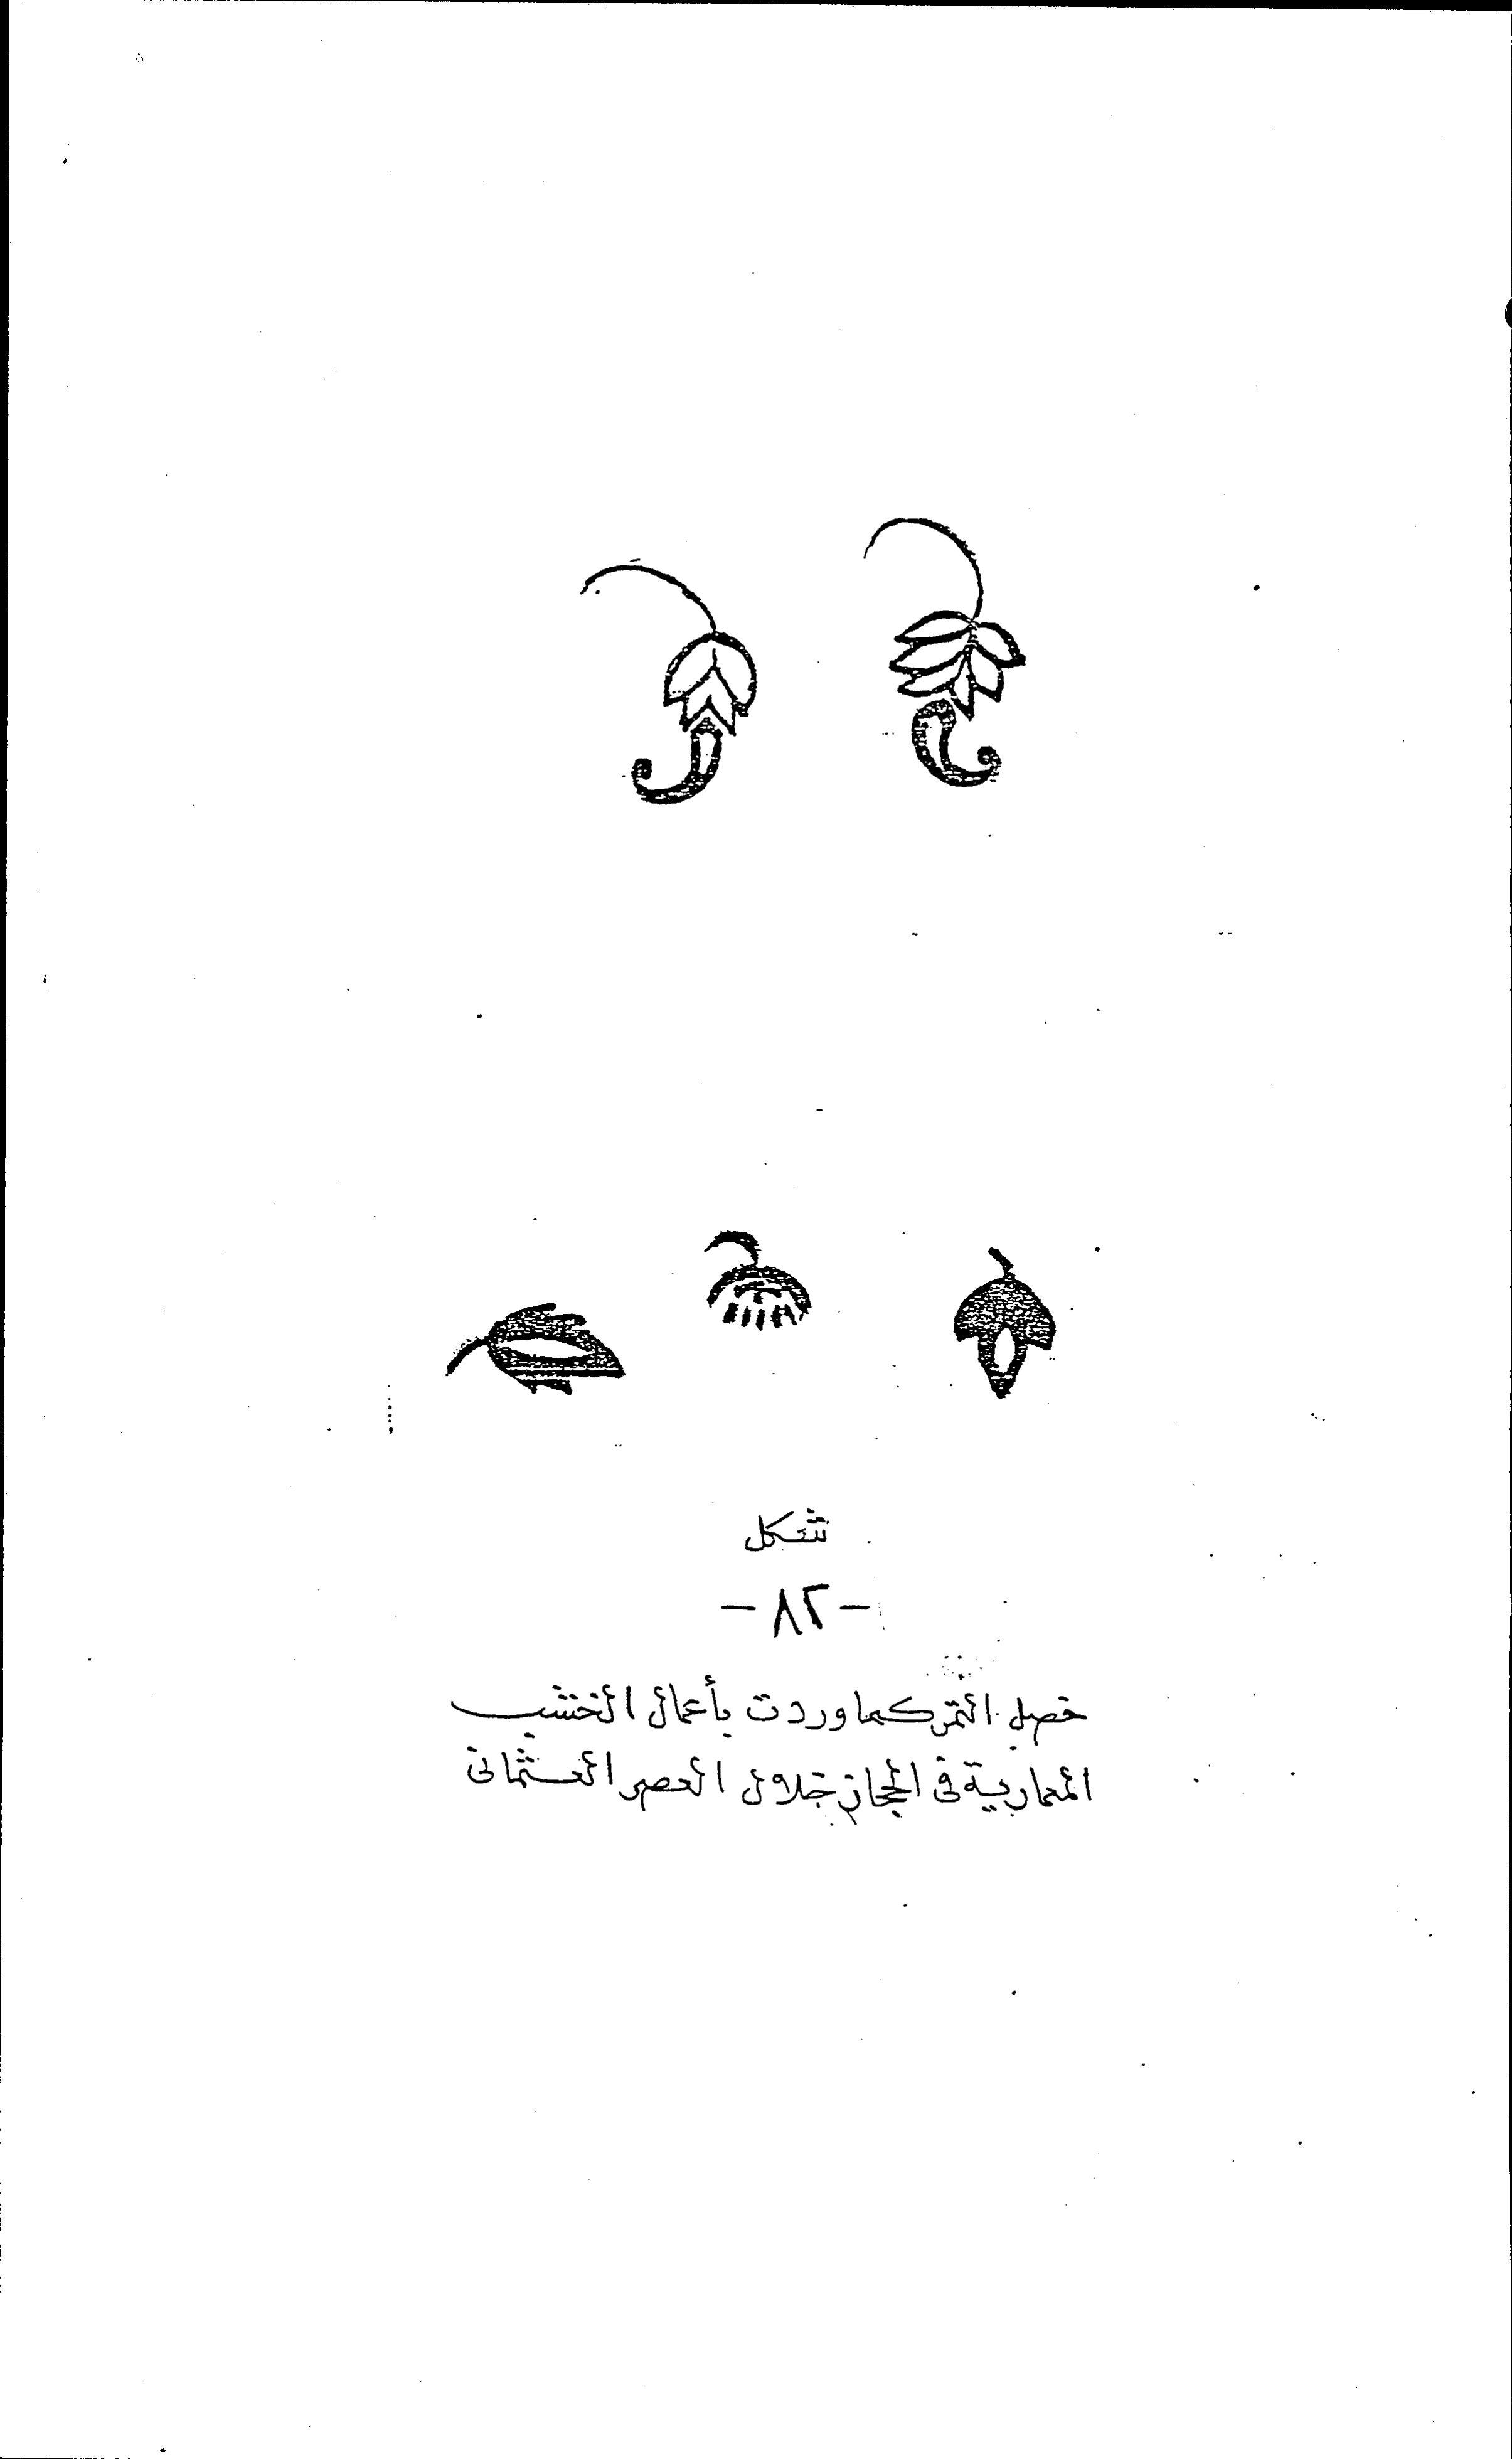 شكل
- ٨٢ -
خصل الثمر كما وردت بأعمال الخشب
المعمارية فى الحجاز خلال العصر العثمانى